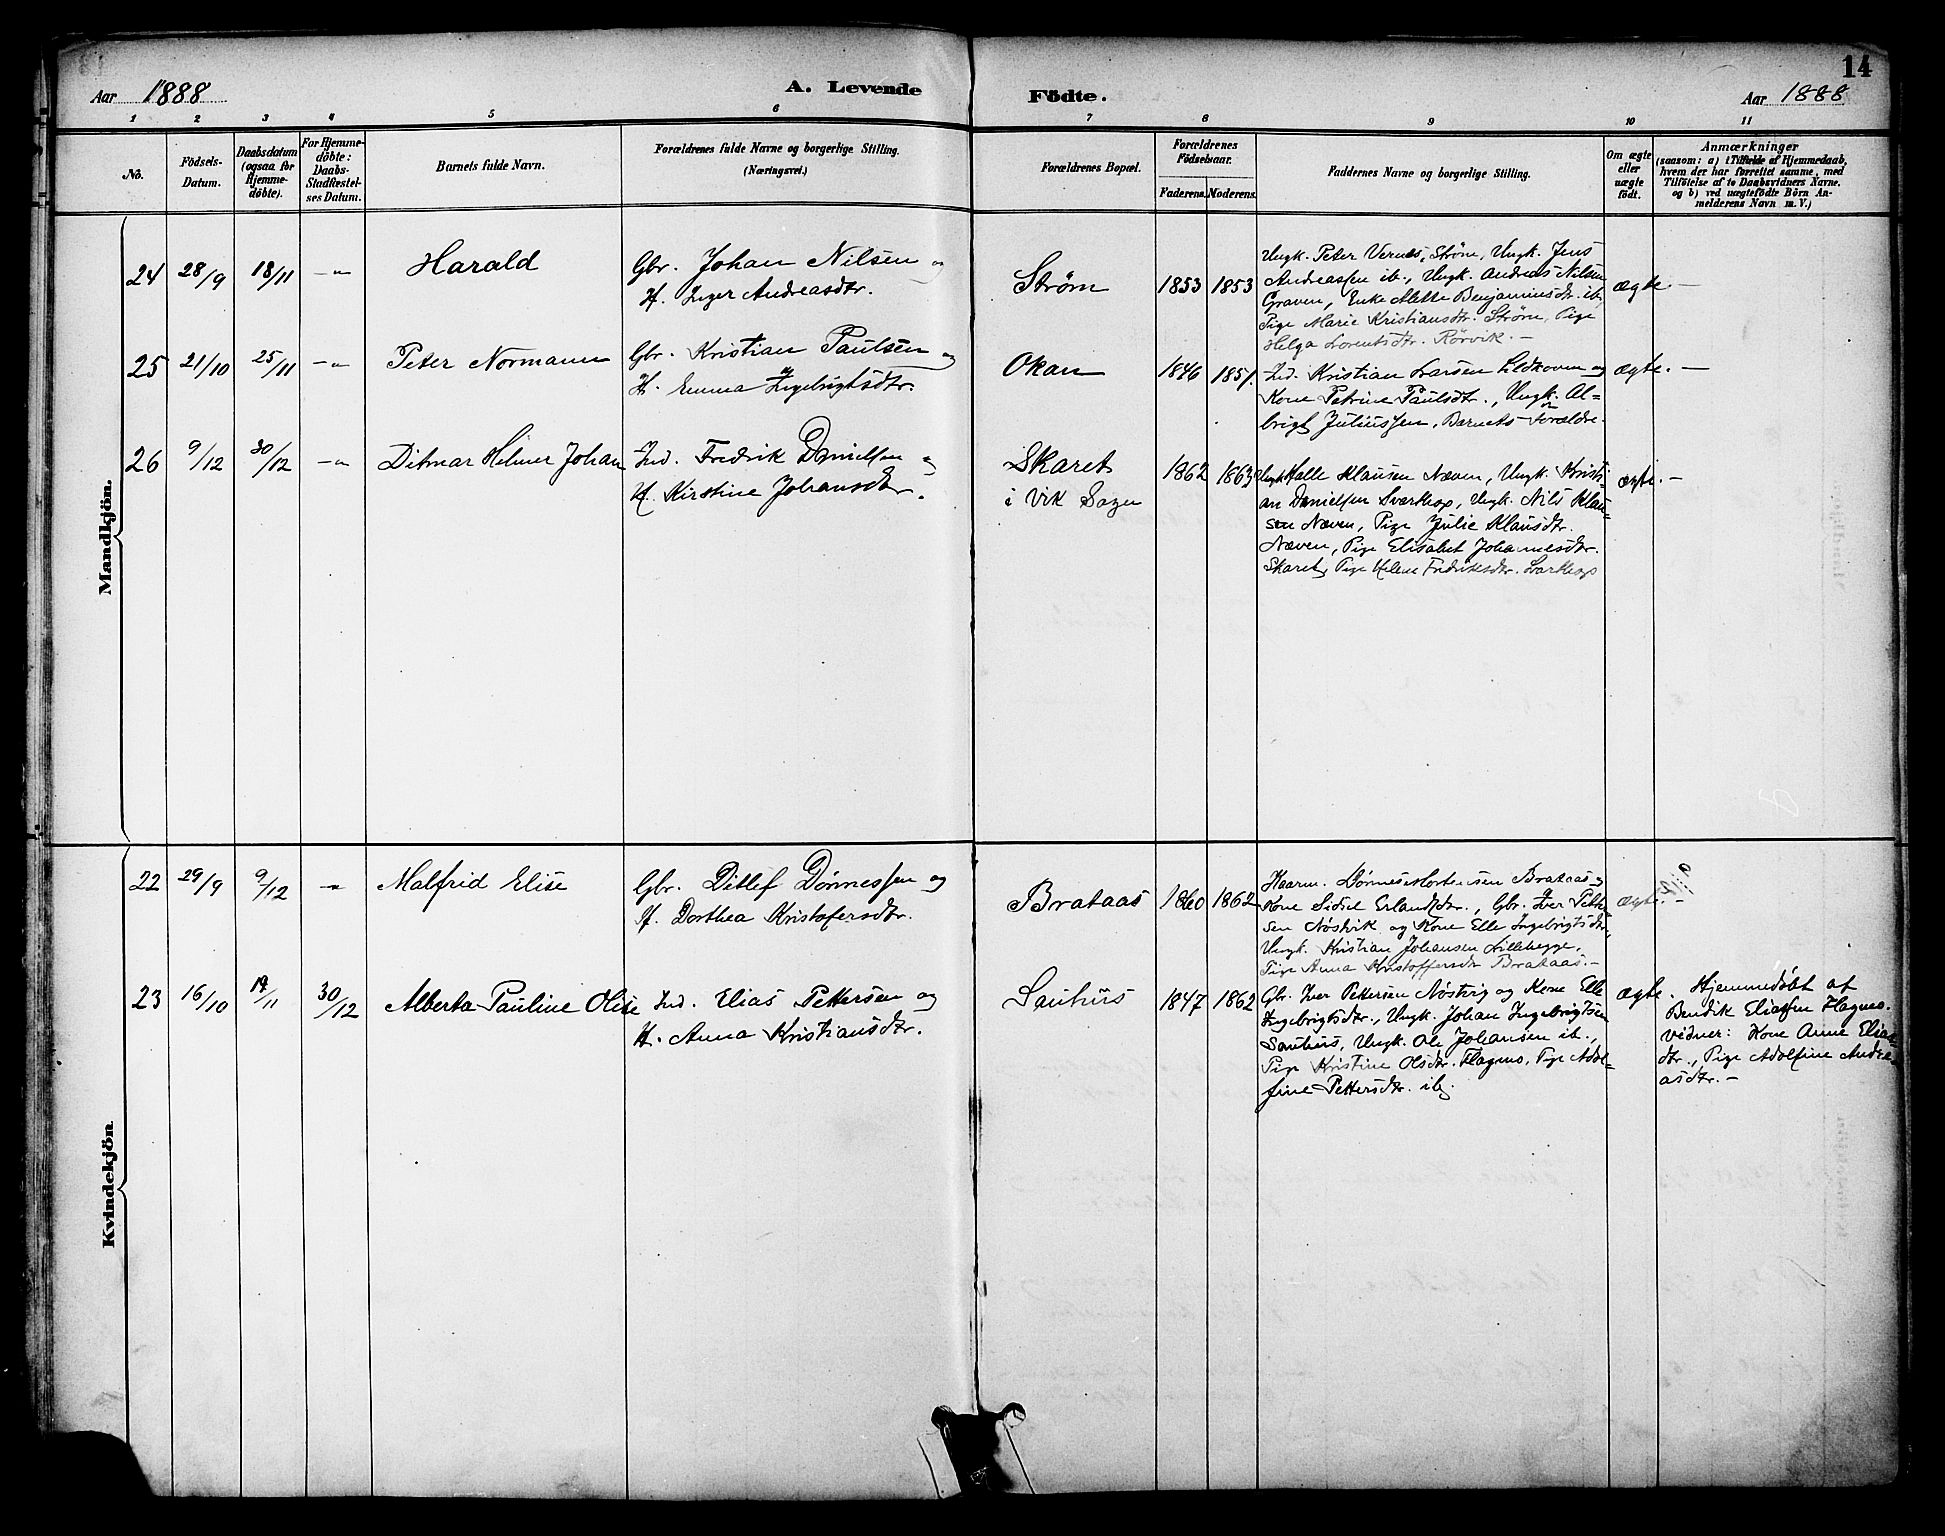 14
Aar 1888
A. Levende Födte.
Aar 1888
1 2 3 4 5 6 7 8 9 10 11
No.
Födsels-
Datum.
Daabsdatum
(ogsaa for
Hjemme-
döbte).
For Hjemme-
döbte:
Daabs-
Stadfæstel-
ses Datum.
Barnets fulde Navn.
Forældrenes fulde Navne og borgerlige Stilling.
(Næringsvei.)
Forældrenes Bopæl.
Forældrenes
Födselsaar.
Faderens. Moderens.
Faddernes Navne og borgerlige Stilling.
Om ægte
eller
uægte
födt.
Anmærkninger
(saasom: a) i Tilfælde af Hjemmedaab,
hvem der har forrettet samme, med
Tilföielse af to Daabsvidners Navne,
og b) ved uægtefödte Börn An-
melderens Navn m. V.)
Mandkjön.
24 28/9 18/11 -"- Harald
Gbr. Johan Nilsen og
H. Inger Andreasdtr.
Strøm
1853 1853
Ungk. Peter Vernes, Strøm, Ungk. Jens
Andreassen ib., Ungk. Andreas Nilsen
Graven, Enke Mette Benjaminsdtr. ib,
Pige Marie Kristiansdtr. Strøm, Pige
Helga Lorentsdtr. Rörvik. -
ægte. -
25 21/10 25/11 -"- Peter Normann
Gbr. Kristian Paulsen og
H. Emma Ingebrigtsdtr.
Okan
1846 1851.
Ind. Kristian Larsen Lidkoven og
Kone Petrine Paulsdtr., Ungk. Al-
brigt Juliussen, Barnets Forældre.
ægte. -
26 9/12 30/12 -"- Ditmar Helmer Johan
Ind. Fredrik Danielsen og
H. Kirstine Johansdtr.
Skaret
i Vik Sogn
1862 1863
Ungk. Halle Klausen Næven, Ungk. Kristi-
an Danielsen Svarthop, Ungk. Nils Klau-
sen Næven, Pige Julie Klausdtr.
Næven, Pige Elisabet Johannesdtr.
Skaret, Pige Helene Fredriksdtr. Svarthop
ægte. -
Kvindekjön.
22 29/9 9/12 -"- Malfrid Elise
Gbr. Ditlef Dønnessen og
H. Dorthea Kristofersdtr.
Brataas
1860 1862
Kaarm. Dønnes Mortensen Brataas og
Kone Sidsel Erlandsdtr., Gbr. Iver Petter-
sen Nöstvik og Kone Elle Ingebrigtsdtr.,
Ungk. Kristian Johansen Lillehegge,
Pige Anna Kristoffersdtr Brataas. -
ægte. -
23 16/10 19/11 30/12 Alberta Pauline Olise
Ind. Elias Pettersen og
H. Anna Kristiansdtr.
Sauhus
1847 1862
Gbr. Iver Pettersen Nöstvig og Kone Elle
Ingebrigtsdtr., Ungk. Johan Ingebrigtsen
Sauhus, Ungk. Ole Johansen ib.,
Pige Kristine Olsdtr. Flagmo, Pige Adol-
fine Pettersdtr. ib.
ægte.
Hjemmedöbt af
Bendik Eliassen Flagmo.
Vidner: Kone Anne Elias-
dtr., Pige Adolfine Andre-
asdtr. -